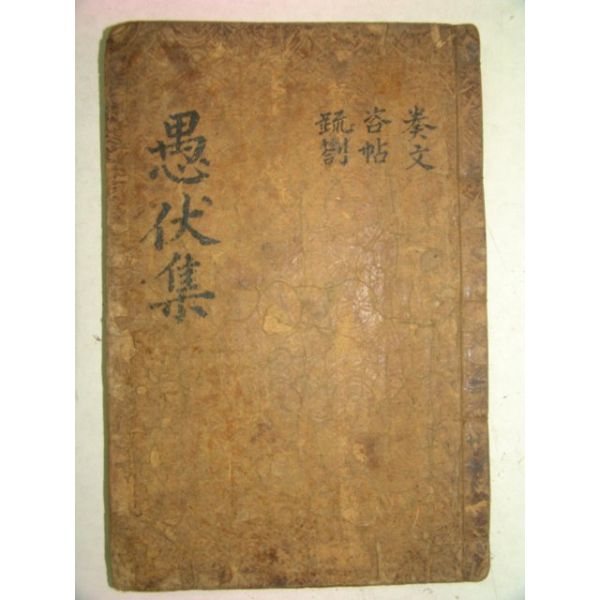 愚伏集
奏文
咨帖
疏劄